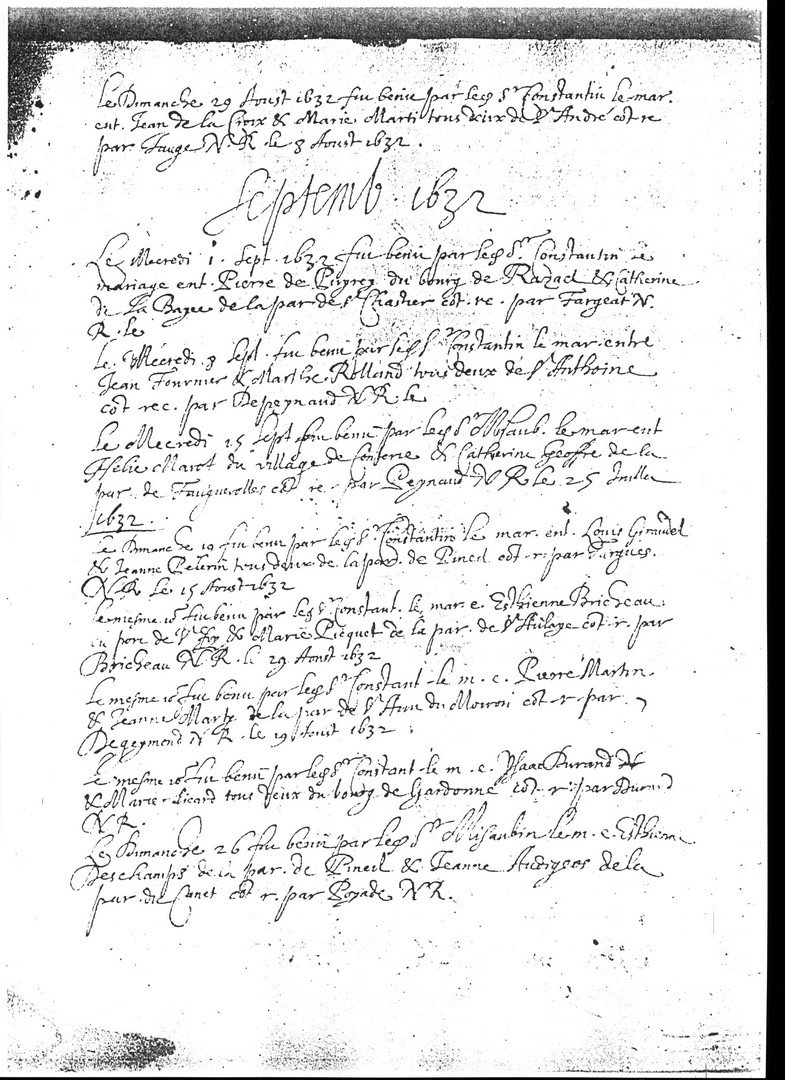 Le Dimanche 29 Aoust 1632 fut beni par led Sr Constantin le mar.
ent. Jean de la Croix & Marie Marti tous deux de St André cot re
par Fauge N. R. le 3 Aoust 1632.
Septemb. 1632
Le Mecredi 1. Sept. 1632 fut beni par led Sr. Constantin le
mariage ent. Pierre de Puyrey du bourg de Razac & Catherine
de La Bayee de la par de St Chastier cot. re. par Fargeat N.
R. le
Le Mecredi 8 Sept. fut beni par led Sr Constantin le mar. entre
Jean Fournier & Marthe Rolland tous deux de St Anthoine
cot rec. par Depeynaud N R le
Le Mecredi 15 Sept fut beni par led Sr Misaub. le mar ent
Helie Marot du village de & Catherine Geoffre de la
par. de Fauguerolles cot re. par Peynaud N R le 25 Juillet
1632.
Le Dimanche 19 fut beni par led Sr Constantin le mar. ent. Louis Giraudel
& Jeanne Pelerin tous deux de la par. de Pineil cot. r. par Durgues.
N. R. le 15 Aoust 1632
Le mesme io fut beni par led Sr Constant. le mar e. Esthienne Bricheau
du port de Ste Foy & Marie Picquet de la par. de St Aulaye cot. r. par
Bricheau N. R. le 29 Aoust 1632
Le mesme io fut beni par led Sr Constant. le m. e. Pierre Martin
& Jeanne Marty de la par de St du Moiron cot. r. par
Degeymond N R. le 19 Aoust 1632
Le mesme io fut beni par led Sr Constant. le m. e. Ysaac Durand
& Marie Ricard tous deux du bourg de Gardonne cot. r. par Durand
N R.
Le Dimanche 26 fut beni par led Sr Misaubin le m. e. Esthiene
Deschamps de la par. de Pineil & Jeanne de la
par. du Canet cot. r. par Pozade N R.